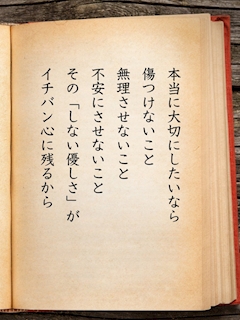 本当に大切にしたいなら
傷つけないこと
無理させないこと
不安にさせないこと
その「しない優しさ」が
イチバン心に残るから